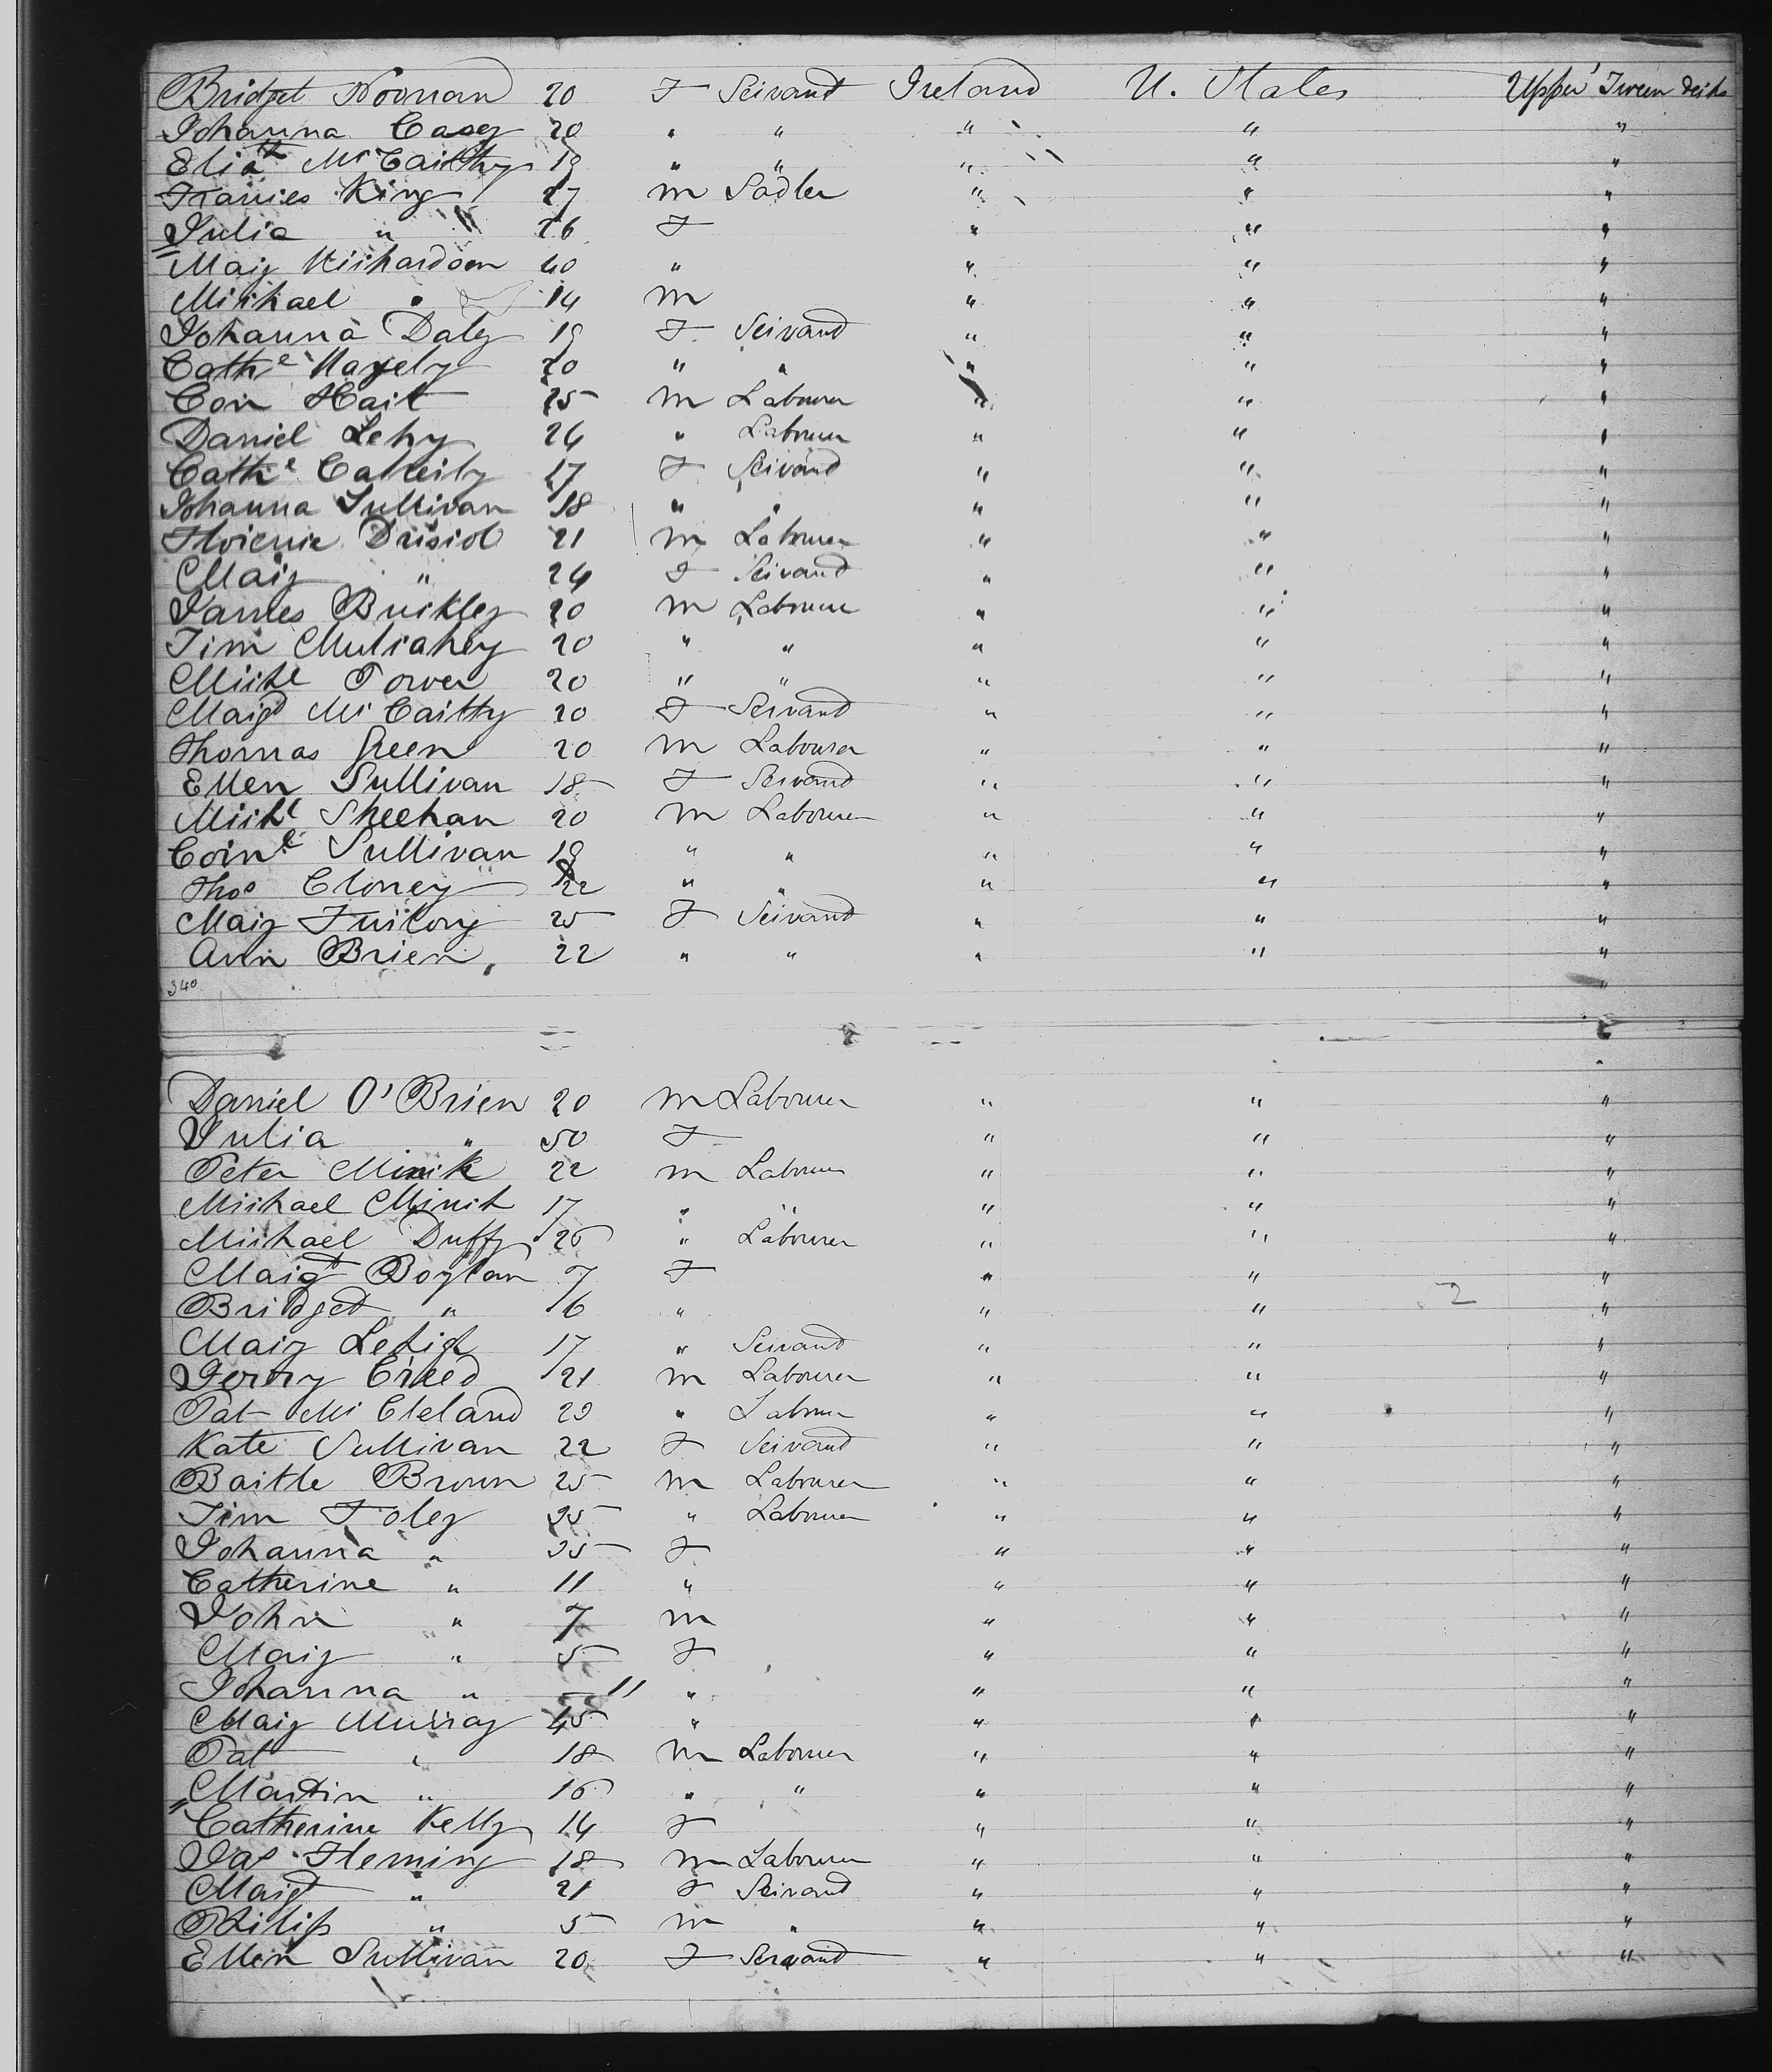 Bridget Noonan 20 F Servant Ireland U. States Upper Tween decks
Johanna Casey 20 " " " " "
Elizth McCarthy 19 " " " " "
Francies King 27 m Sadler " " "
Julia " 26 F " " "
Mary Richardson 40 " " " "
Michael " 14 m " " "
Johanna Daley 19 F Servant " " "
Cathe 20 " " " " "
Con Hart 25 m Labourer " " "
Daniel Lehy 24 " Labourer " " "
Cathe 17 F Servant " " "
Johanna Sullivan 18 " " " " "
Florence Driscol 21 m Labourer " " "
Mary " 24 F Servant " " "
James Buckley 20 m Labourer " " "
Tim Mulcahey 20 " " " " "
Michl Power 20 " " " " "
Margt McCarthy 20 F Servant " " "
Thomas Green 20 m Labourer " " "
Ellen Sullivan 18 F Servant " " "
Michl Sheehan 20 m Labourer " " "
Cornl Sullivan 19 " " " " "
Thos Cloney 22 " " " " "
Mary Furlong 25 F Servant " " "
Ann Brien 22 " " " " "
340 "
Daniel O'Brien 20 m Labourer " " "
Julia " 50 F " " "
Peter Minik 22 m Labourer " " "
Michael 17 " " " " "
Michael Duffy 26 " Labourer " " "
Margt Boylan 7 F " " "
Bridget " 6 " " " " 2
Mary 17 " Servant " " "
Jerry Creed 21 m Labourer " " "
Pat McCleland 20 " Labourer " " "
Kate Sullivan 22 F Servant " " "
Bartle Brown 25 m Labourer " " "
Tim Foley 35 " Labourer " " "
Johanna " 35 F " " "
Catherine " 11 " " " "
John " 7 m " " "
Mary " 5 F " " "
Johanna " — 11 " " " "
Mary Murray 45 " " " "
Pat " 18 m Labourer " " "
Martin " 16 " " " " "
Catherine Kelly 14 F " " "
Jas Fleming 18 m Labourer " " "
Margt " 21 F Servant " " "
Philip " 5 m " " " "
Ellen Sullivan 20 F Servant " " "